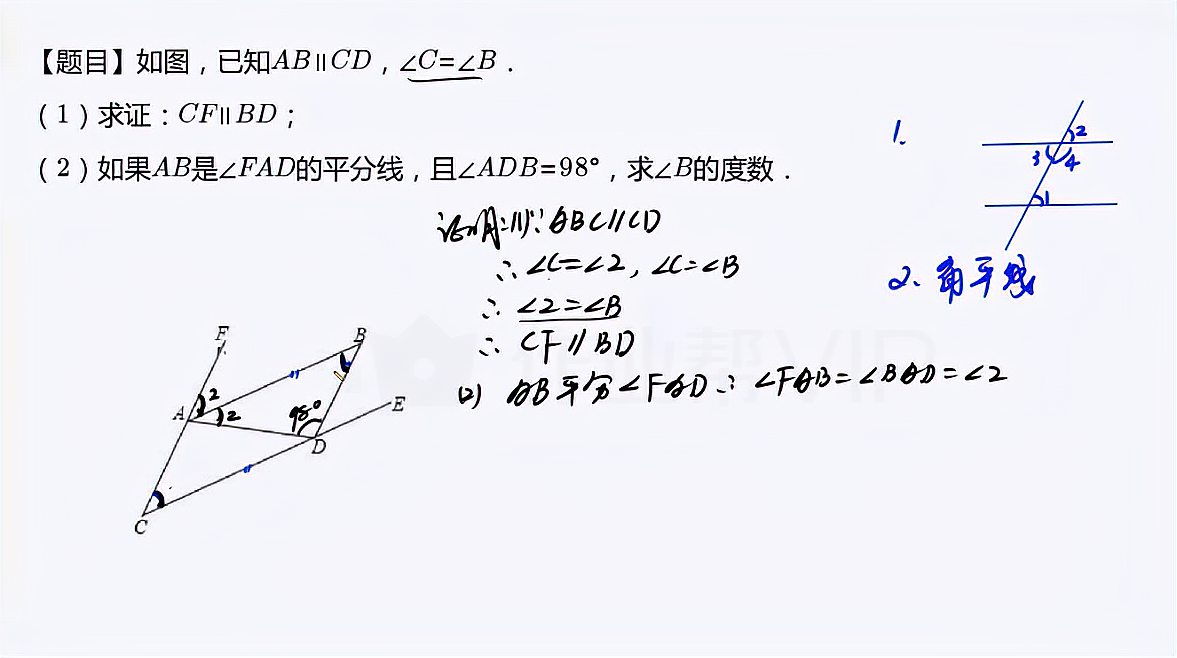 【题目】如图，已知AB∥CD，∠C=∠B．
（1）求证：CF∥BD；
（2）如果AB是∠FAD的平分线，且∠ADB=98°，求∠B的度数．
1.
2
3
4
1
2. 角平线
证明:(1)∵ABC//CD
∴ ∠C=∠2, ∠C=∠B
∴ ∠2=∠B
∴ CF//BD
(2) AB平分∠FAD∴ ∠FAB=∠BAD=∠2
F
B
A
2
2
98°
E
D
C